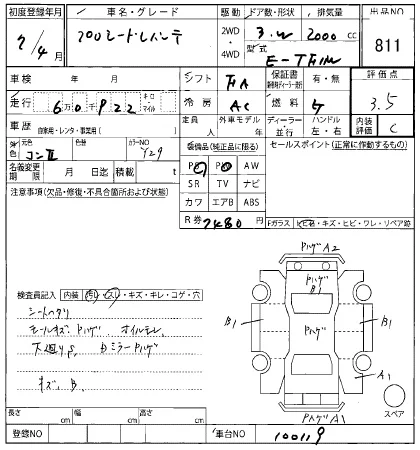 初度登録年月 車名・グレード 駆動 ドア数・形状 排気量 出品NO
7/4月 200 2WD・4WD 3.W 2000cc 811
型式 E-
車検 年 月 シフト FA 保証書 有・無 評価点
走行 6万0922 キロ・マイル 冷房 AC 燃料 3.5
車歴 自家用・レンタ・事業用[ ] 定員 人 外車モデル 年 ディーラー・並行 ハンドル 左・右 内装評価 C
外色 元色 コン 色替 カラーNO 装備品(純正品に限る) セールスポイント(正常に作動するもの)
名義変更期限 月 日迄 積載 t PS PW AW
SR TV ナビ
注意事項(欠品・修復・不具合箇所および状態) カワ エアB ABS
R券 7480円 Fガラス 飛石・キズ・ヒビ・ワレ・リペア跡
PハゲA2
PハゲB1
検査員記入 内装 汚れ・スレ・キズ・キレ・コゲ・穴
シートヘタリ B1 Pハゲ B1
モールキズ Pハゲ オイルモレ
下廻りS DミラーPハゲ A1
キズ、B.
スペア
PハゲA1
長さ cm 幅 cm 高さ cm
登録NO 車台NO 100119